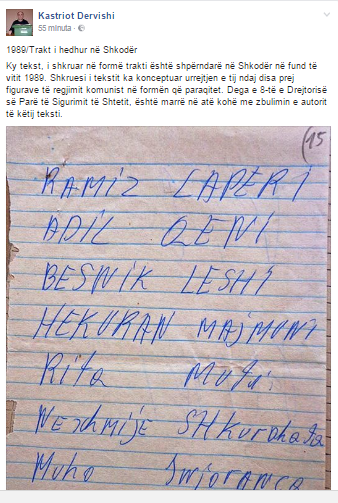 Kastriot Dervishi
55 minuta ·
1989/Trakt i hedhur në Shkodër
Ky tekst, i shkruar në formë trakti është shpërndarë në Shkodër në fund të
vitit 1989. Shkruesi i tekstit ka konceptuar urrejtjen e tij ndaj disa prej
figurave të regjimit komunist në formën që paraqitet. Dega e 8-të e Drejtorisë
së Parë të Sigurimit të Shtetit, është marrë në atë kohë me zbulimin e autorit
të këtij teksti.
15
RAMIZ LAPERI
ADIL QENI
BESNIK LESHI
HEKURAN MAJMUNI
Rita Muti
Nexhmije SHkurohata
Muho